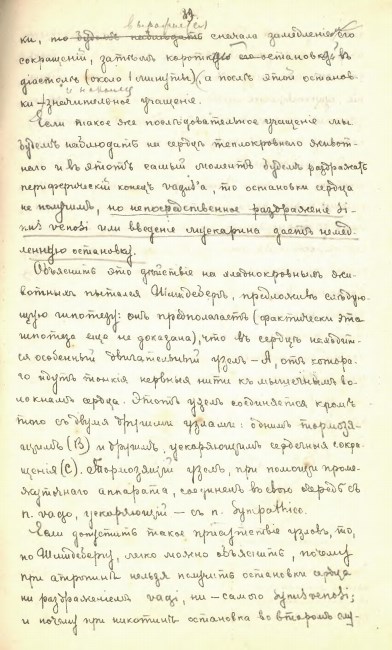 39
выразится
ки, то будемъ наблюдать сначала замедленіе его
сокращеній, затѣмъ короткую его остановку въ
діастолѣ (около 1 минуты), а послѣ этой останов-
ки – значительное учащеніе.
Если такое же послѣдовательное учащеніе мы
будемъ наблюдать на сердцѣ теплокровнаго живот-
наго и въ этотъ самый моментъ будемъ раздражать
периферическій конецъ vagus'a, то остановки сердца
не получимъ, но непосредственное раздраженіе si-
nus venosi или введеніе мускарина даетъ немед-
ленную остановку.
Объяснить это дѣйствіе на хладнокровныхъ жи-
вотныхъ пытался Шмидебергъ, предложивъ слѣдую-
щую гипотезу: онъ предполагаетъ (фактически эта
гипотеза еще не доказана), что въ сердцѣ находит-
ся особенный двигательный узелъ – А, отъ которо-
го идутъ тонкія нервныя нити къ мышечнымъ во-
локнамъ сердца. Этотъ узелъ соединяется кромѣ
того съ двумя другими узлами: однимъ тормозя-
щимъ (В) и другимъ, ускоряющимъ сердечныя сокра-
щенія (С). Тормозящій узелъ, при помощи проме-
жуточнаго аппарата, соединенъ въ свою очередь съ
n. vago, ускоряющій – съ n. Sympathico.
Если допустить такое присутствіе узловъ, то,
по Шмидебергу, легко можно объяснить, почему
при атропинѣ нельзя получить остановки сердца
ни раздраженіемъ vagi, ни – самого Sinus venosi;
и почему при никотинѣ остановка во второмъ слу-